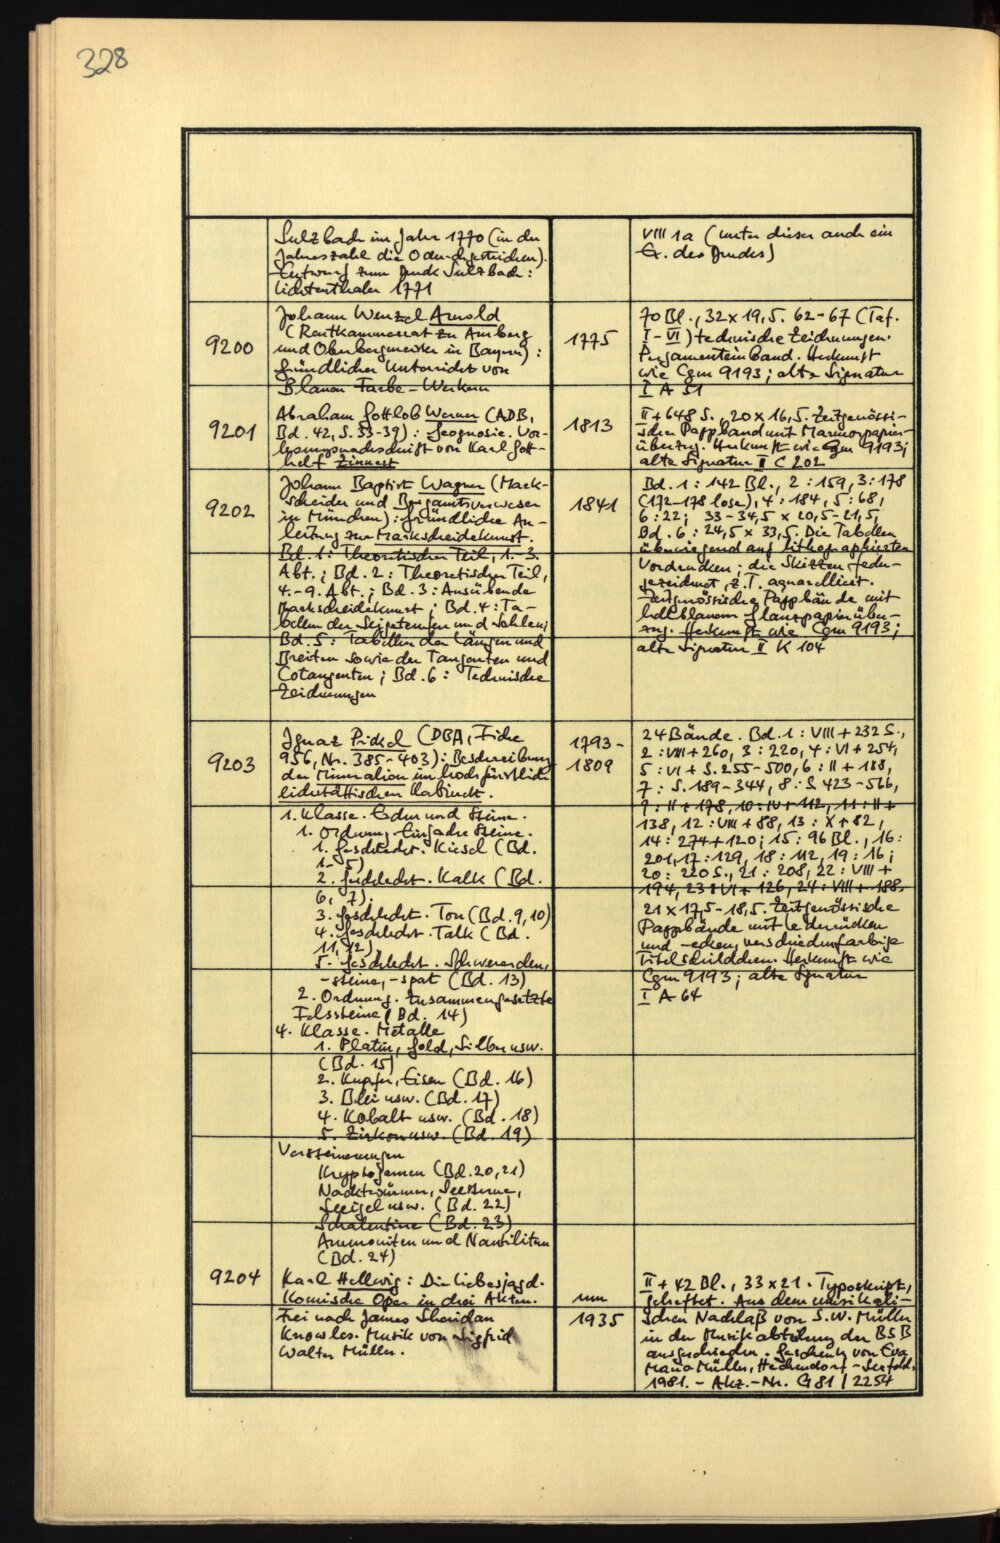 328
Sulzbach im Jahr 1770 (in der
Jahreszahl die 0 durchgestrichen).
Entwurf zum Druck Sulzbach:
Lichtenthaler 1771
VIII 1a (unter dieser auch ein
Ex. des Drucks)
9200
Johann Wenzel Arnold
(Rentkammerrat zu Amberg
und Oberbergmeister in Bayern):
Gründlicher Unterricht von
Blauen Farbe-Werken
1775
70 Bl., 32 x 19,5. 62-67 (Taf.
I-VI) technische Zeichnungen.
Pergamenteinband. Herkunft
wie Cgm 9193; alte Signatur
I A 51
9201
Abraham Gottlob Werner (ADB,
Bd. 42, S. 33-39): Geognosie. Vor-
lesungsnachschrift von Karl Gott-
helf Zinnert
1813
II + 648 S., 20 x 16,5. Zeitgenössi-
scher Pappband mit Marmorpapier-
überzug. Herkunft wie Cgm 9193;
alte Signatur II C 202
9202
Johann Baptist Wagner (Mark-
scheider und Bergamtsverweser
in München): Gründliche An-
leitung zur Markscheidekunst.
Bd. 1: Theoretischer Teil, 1.-3.
Abt.; Bd. 2: Theoretischer Teil,
4.-9. Abt.; Bd. 3: Ausübende
Markscheidekunst; Bd. 4: Ta-
bellen der Seigerteufen und Sohlen;
Bd. 5: Tabellen der Längen und
Breiten sowie der Tangenten und
Cotangenten; Bd. 6: Technische
Zeichnungen
1841
Bd. 1: 142 Bl., 2: 159, 3: 178
(172-178 lose), 4: 184, 5: 68,
6: 22; 33-34,5 x 20,5-21,5,
Bd. 6: 24,5 x 33,5. Die Tabellen
überwiegend auf lithographierten
Vordrucken; die Skizzen feder-
gezeichnet, z.T. aquarelliert.
Zeitgenössische Pappbände mit
hellblauem Glanzpapierüber-
zug. Herkunft wie Cgm 9193;
alte Signatur II K 104
9203
Ignaz Pickel (DBA, Fiche
956, Nr. 385-403): Beschreibung
der Mineralien im hochfürstlich
eichstättischen Kabinett.
1. Klasse. Erden und Steine.
1. Ordnung. Einfache Steine.
1. Geschlecht. Kiesel (Bd.
1-5)
2. Geschlecht. Kalk (Bd.
6, 7)
3. Geschlecht. Ton (Bd. 9, 10)
4. Geschlecht. Talk (Bd.
11, 12)
5. Geschlecht. Schwererden,
-steine, -spat (Bd. 13)
2. Ordnung. Zusammengesetzte
Felssteine (Bd. 14)
4. Klasse. Metalle
1. Platin, Gold, Silber usw.
(Bd. 15)
2. Kupfer, Eisen (Bd. 16)
3. Blei usw. (Bd. 17)
4. Kobalt usw. (Bd. 18)
5. Zirkon usw. (Bd. 19)
Versteinerungen
Kryptogamen (Bd. 20, 21)
Nacktwürmer, Seesterne,
Seeigel usw. (Bd. 22)
Schalentiere (Bd. 23)
Ammoniten und Nautiliten
(Bd. 24)
1793-
1809
24 Bände. Bd. 1: VIII + 232 S.,
2: VIII + 260, 3: 220, 4: VI + 254,
5: VI + S. 255-500, 6: II + 188,
7: S. 189-344, 8: S. 423-566,
9: II + 178, 10: IV + 112, 11: II +
138, 12: VIII + 88, 13: X + 82,
14: 274 + 120; 15: 96 Bl., 16:
201, 17: 129, 18: 112, 19: 16;
20: 220 S., 21: 208, 22: VIII +
194, 23: VI + 126, 24: VIII + 188.
21 x 17,5-18,5. Zeitgenössische
Pappbände mit Lederrücken
und -ecken, verschiedenfarbige
Titelschildchen. Herkunft wie
Cgm 9193; alte Signatur
I A 64
9204
Karl Hellwig: Die Liebesjagd.
Komische Oper in drei Akten.
Frei nach James Sheridan
Knowles. Musik von Sigfrid
Walter Müller.
um
1935
II + 42 Bl., 33 x 21. Typoskript,
geheftet. Aus dem musikali-
schen Nachlaß von S. W. Müller
in der Musikabteilung der BSB
ausgeschieden. Geschenk von Eva
Maria Müller, Hechendorf-Seefeld,
1981. - Akz.-Nr. G 81 / 2254